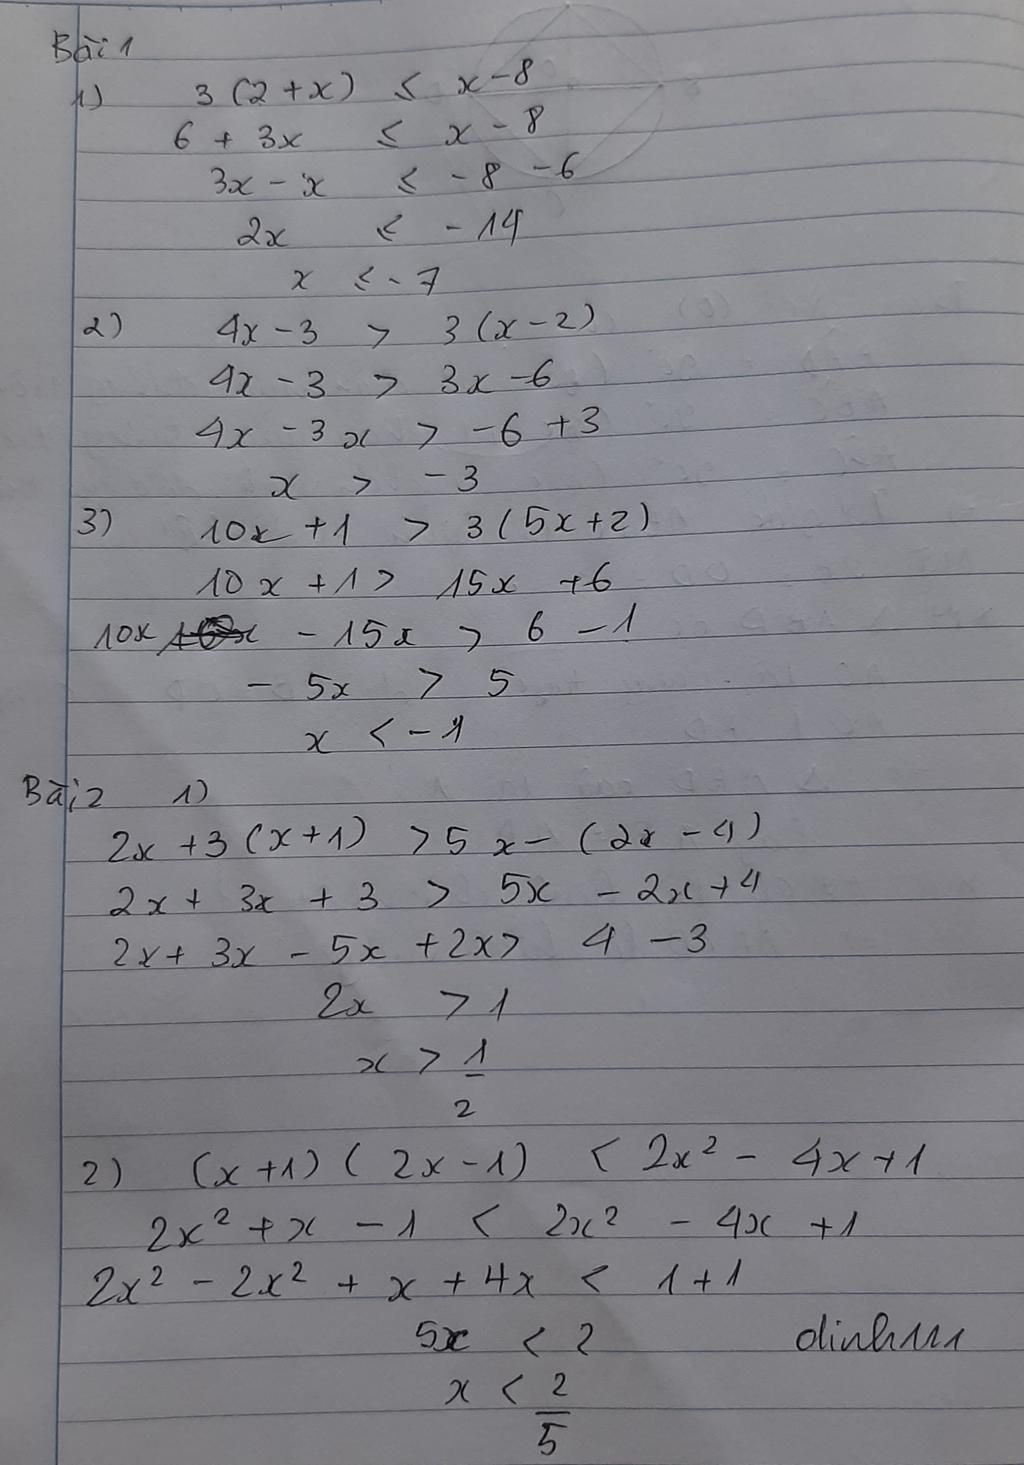 Bài 1
1) 3(2+x) ≤ x-8
6 + 3x ≤ x - 8
3x - x ≤ -8 -6
2x ≤ -14
x ≤ -7
2) 4x -3 > 3(x-2)
4x - 3 > 3x -6
4x - 3x > -6 +3
x > -3
3) 10x +1 > 3(5x+2)
10x +1 > 15x +6
10x - 15x > 6 -1
- 5x > 5
x < -1
Bài 2 1)
2x +3(x+1) > 5x - (2x - 4)
2x + 3x + 3 > 5x - 2x + 4
2x + 3x - 5x + 2x > 4 - 3
2x > 1
x > 1/2
2) (x+1)(2x-1) < 2x² - 4x+1
2x² + x - 1 < 2x² - 4x +1
2x² - 2x² + x + 4x < 1+1
5x < 2 dinh111
x < 2/5